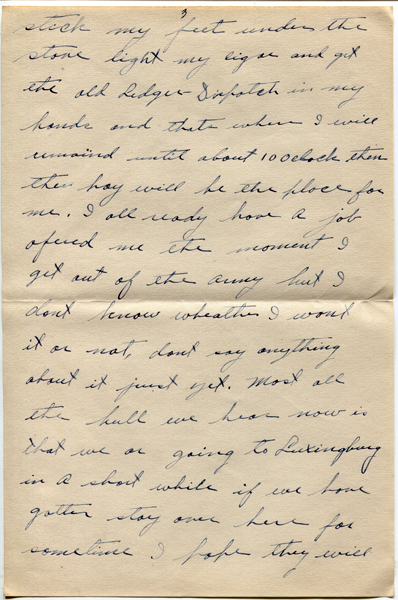 3
stick my feet under the
stove light my cigar and get
the old Ledger-Dispatch in my
hands and thats where I will
remaind until about 10 Oclock then
the hay will be the place for
me. I all ready have a job
offered me the moment I
get out of the army but I
dont know wheather I want
it or not, dont say anything
about it just yet. Most all
the bull we hear now is
that we or going to Luxingburg
in a short while if we have
gotter stay over here for
sometime I hope they will